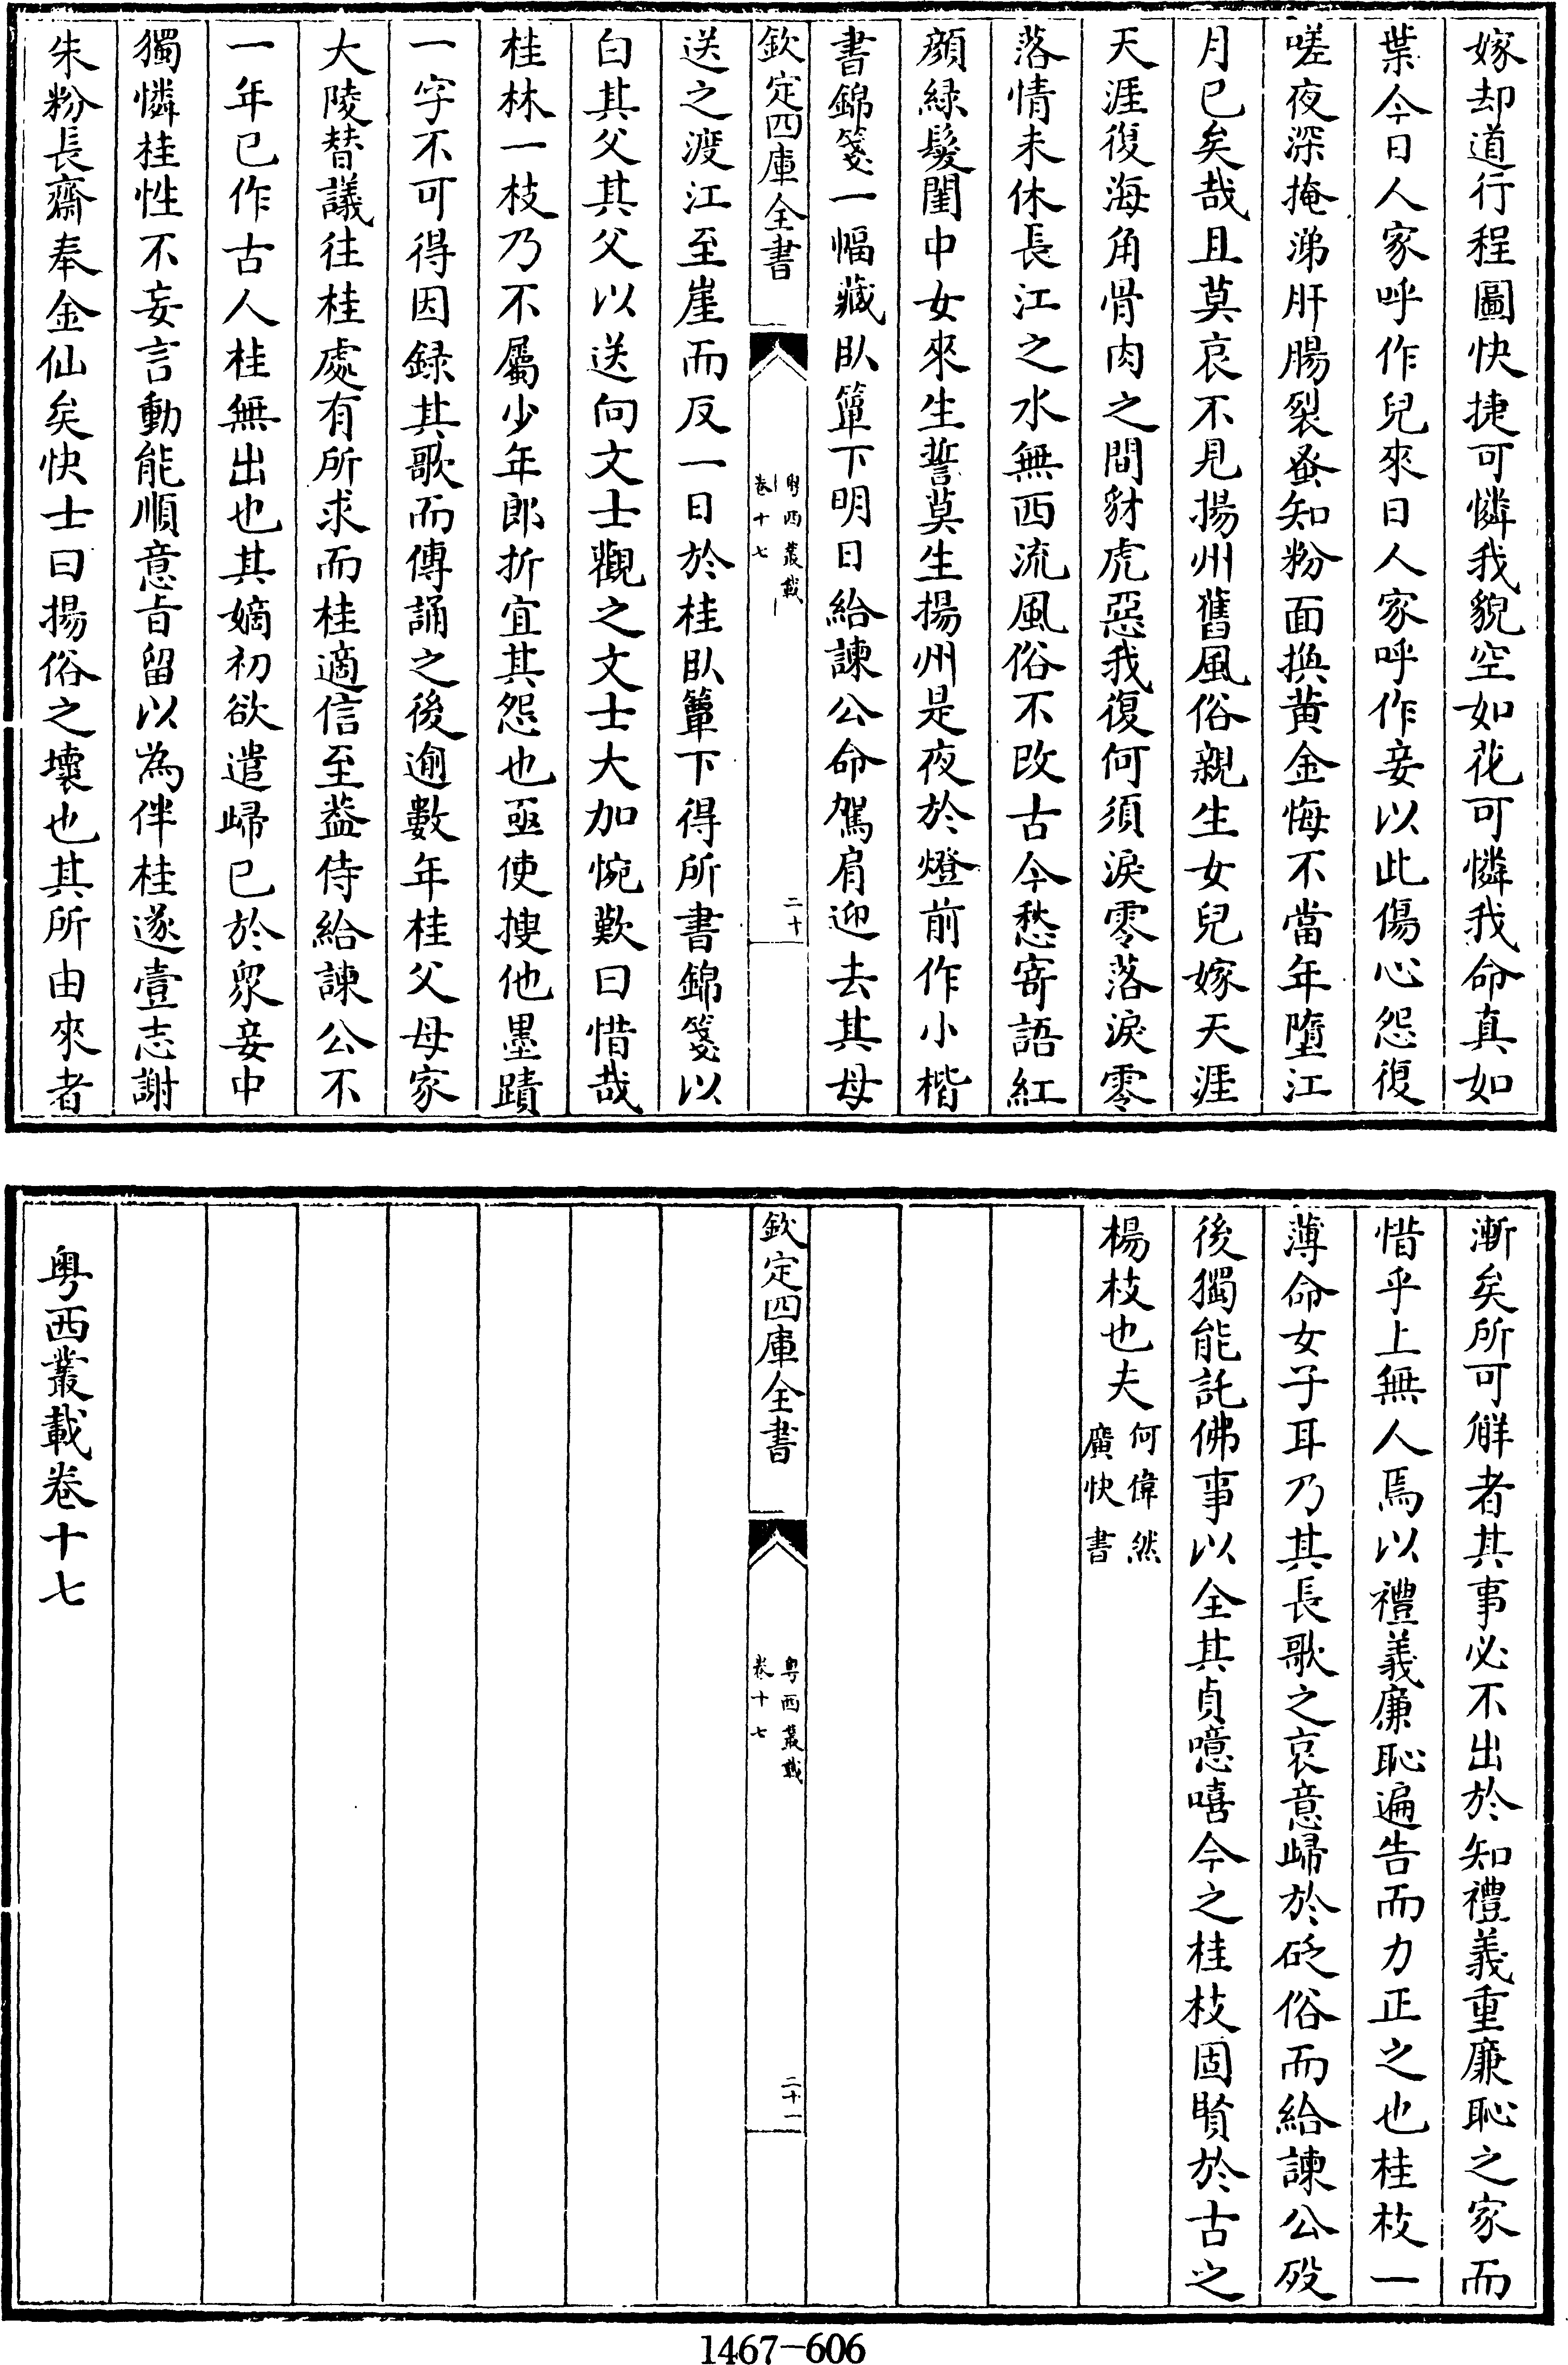 嫁却道行程圖快捷可憐我貌空如花可憐我命真如
葉今日人家呼作兒來日人家呼作妾以此傷心怨復
嗟夜深掩涕肝腸裂蚤知粉面換黄金悔不當年墮江
月已矣哉且莫哀不見揚州舊風俗親生女兒嫁天涯
天涯復海角骨肉之間豺虎惡我復何須淚零落淚零
落情未休長江之水無西流風俗不改古今愁寄語紅
顔緑髮閨中女來生誓莫生揚州是夜於燈前作小楷
書錦箋一幅藏臥簟下明日給諫公命駕肩迎去其母
欽定四庫全書
粤西叢載
卷十七
二十
送之渡江至崖而反一日於桂臥簟下得所書錦箋以
白其父其父以送向文士觀之文士大加惋歎曰惜哉
桂林一枝乃不屬少年郎折宜其怨也亟使搜他墨蹟
一字不可得因録其歌而傳誦之後逾數年桂父母家
大陵替議往桂處有所求而桂適信至葢侍給諫公不
一年已作古人桂無出也其嫡初欲遣歸已於衆妾中
獨憐桂性不妄言動能順意㫖留以為伴桂遂壹志謝
朱粉長齋奉金仙矣快士曰揚俗之壞也其所由來者
漸矣所可觧者其事必不出於知禮義重廉恥之家而
惜乎上無人焉以禮義廉恥遍告而力正之也桂枝一
薄命女子耳乃其長歌之哀意歸於砭俗而給諫公殁
後獨能託佛事以全其貞噫嘻今之桂枝固賢於古之
楊枝也夫
何偉然
廣快書
欽定四庫全書
粤西叢載
卷十七
二十一
粤西叢載卷十七
1467-606